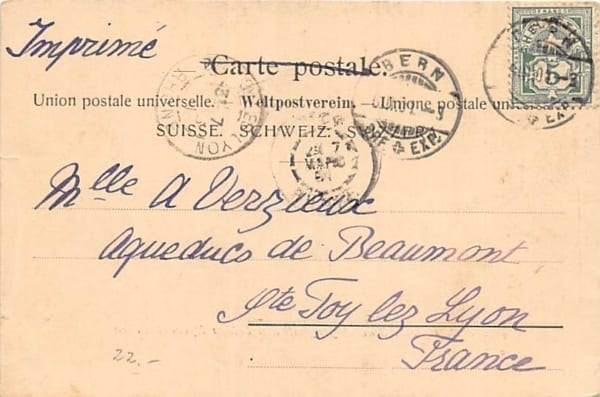 Imprimé
Carte postale.
Union postale universelle. Weltpostverein. Unione postale universale.
SUISSE. SCHWEIZ. SVIZZERA.
BERN
BRF. EXP.
LYON
Mlle A Verzieux
Aqueducs de Beaumont
Ste Foy lez Lyon
France
22.-